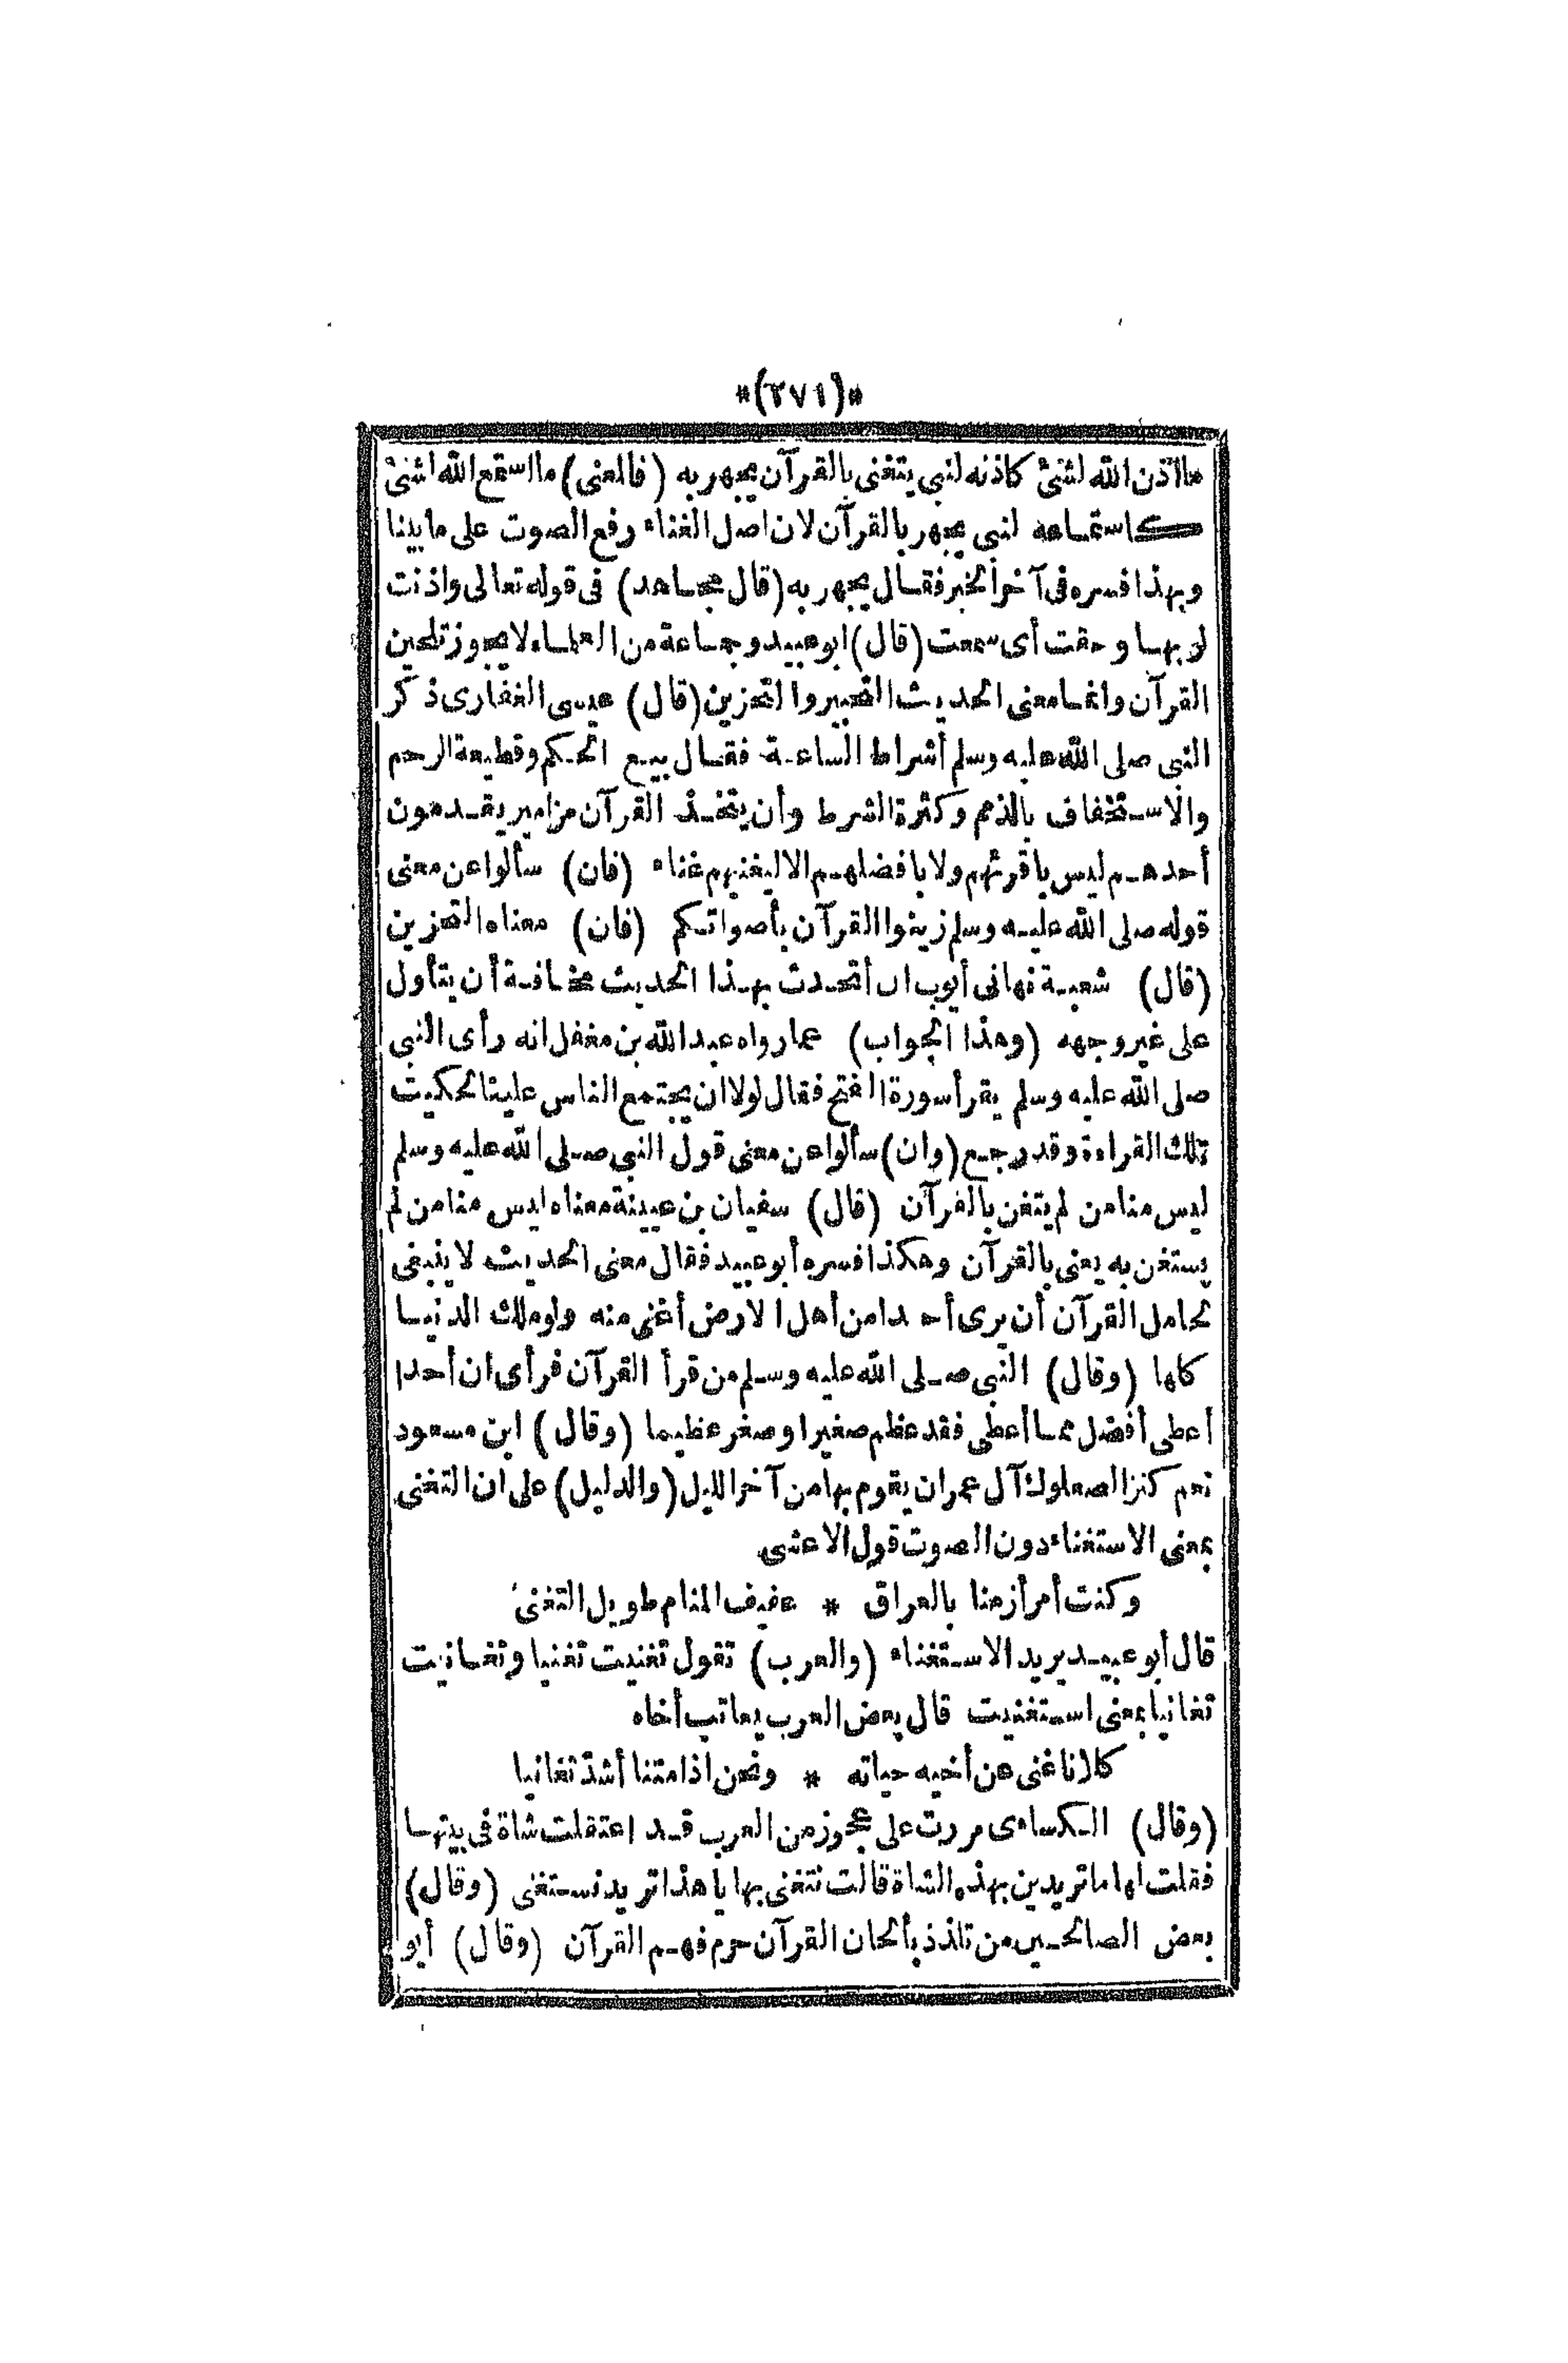 *(٢٧١)*
ما أذن الله لشئ كاذنه لنبي يتغنى بالقرآن يجهر به (فالمعنى) ما استمع الله لشئ
كاستماعه لنبي يجهر بالقرآن لان اصل الغناء رفع الصوت على ما بينا
وبهذا فسره في آخر الخبر فقال يجهر به (قال مجاهد) في قوله تعالى واذنت
لربها وحقت أى سمعت (قال) ابو عبيد وجماعة من العلماء لا يجوز تلحين
القرآن وانما معنى الحديث التحبير والتحزين (قال) عيسى الغفارى ذكر
النبي صلى الله عليه وسلم أشراط الساعة فقال بيع الحكم وقطيعة الرحم
والاستخفاف بالذمم وكثرة الشرط وأن يتخذ القرآن مزامير يقدمون
أحدهم ليس باقرئهم ولا بافضلهم الا ليغنيهم غناء (فان) سألوا عن معنى
قوله صلى الله عليه وسلم زينوا القرآن بأصواتكم (فان) معناه التحزين
(قال) شعبة نهانى أيوب ان أتحدث بهذا الحديث مخافة أن يتأول
على غير وجهه (وهذا الجواب) عما رواه عبد الله بن مغفل انه رأى النبي
صلى الله عليه وسلم يقرأ سورة الفتح فقال لولا ان يجتمع الناس علينا لحكيت
تلك القراءة وقد رجع (وان) سألوا عن معنى قول النبي صلى الله عليه وسلم
ليس منا من لم يتغن بالقرآن (قال) سفيان بن عيينة معناه ليس منا من لم
يستغن به يعنى بالقرآن وهكذا فسره أبو عبيد فقال معنى الحديث لا ينبغى
لحامل القرآن أن يرى أحدا من أهل الارض أغنى منه ولو ملك الدنيا
كلها (وقال) النبي صلى الله عليه وسلم من قرأ القرآن فرأى ان أحدا
أعطى أفضل مما أعطى فقد عظم صغيرا وصغر عظيما (وقال) ابن مسعود
نعم كنز الصعلوك آل عمران يقوم بها من آخر الليل (والدليل) على ان التغنى
بمعنى الاستغناء دون الصوت قول الاعشى
وكنت أمرأ زمنا بالعراق * عفيف المنام طويل التغنى
قال أبو عبيد يريد الاستغناء (والعرب) تقول تغنيت تغنيا وتغانيت
تغانيا بمعنى استغنيت قال بعض العرب يعاتب أخاه
كلانا غنى عن أخيه حياته * ونحن اذا متنا أشد تغانيا
(وقال) الكساءى مررت على عجوز من العرب قد اعتقلت شاة فى بيتها
فقلت لها ما تريدين بهذه الشاة قالت نتغنى بها يا هذا تريد نستغنى (وقال)
بعض الصالحين من تلذذ بألحان القرآن حرم فهم القرآن (وقال) أبو